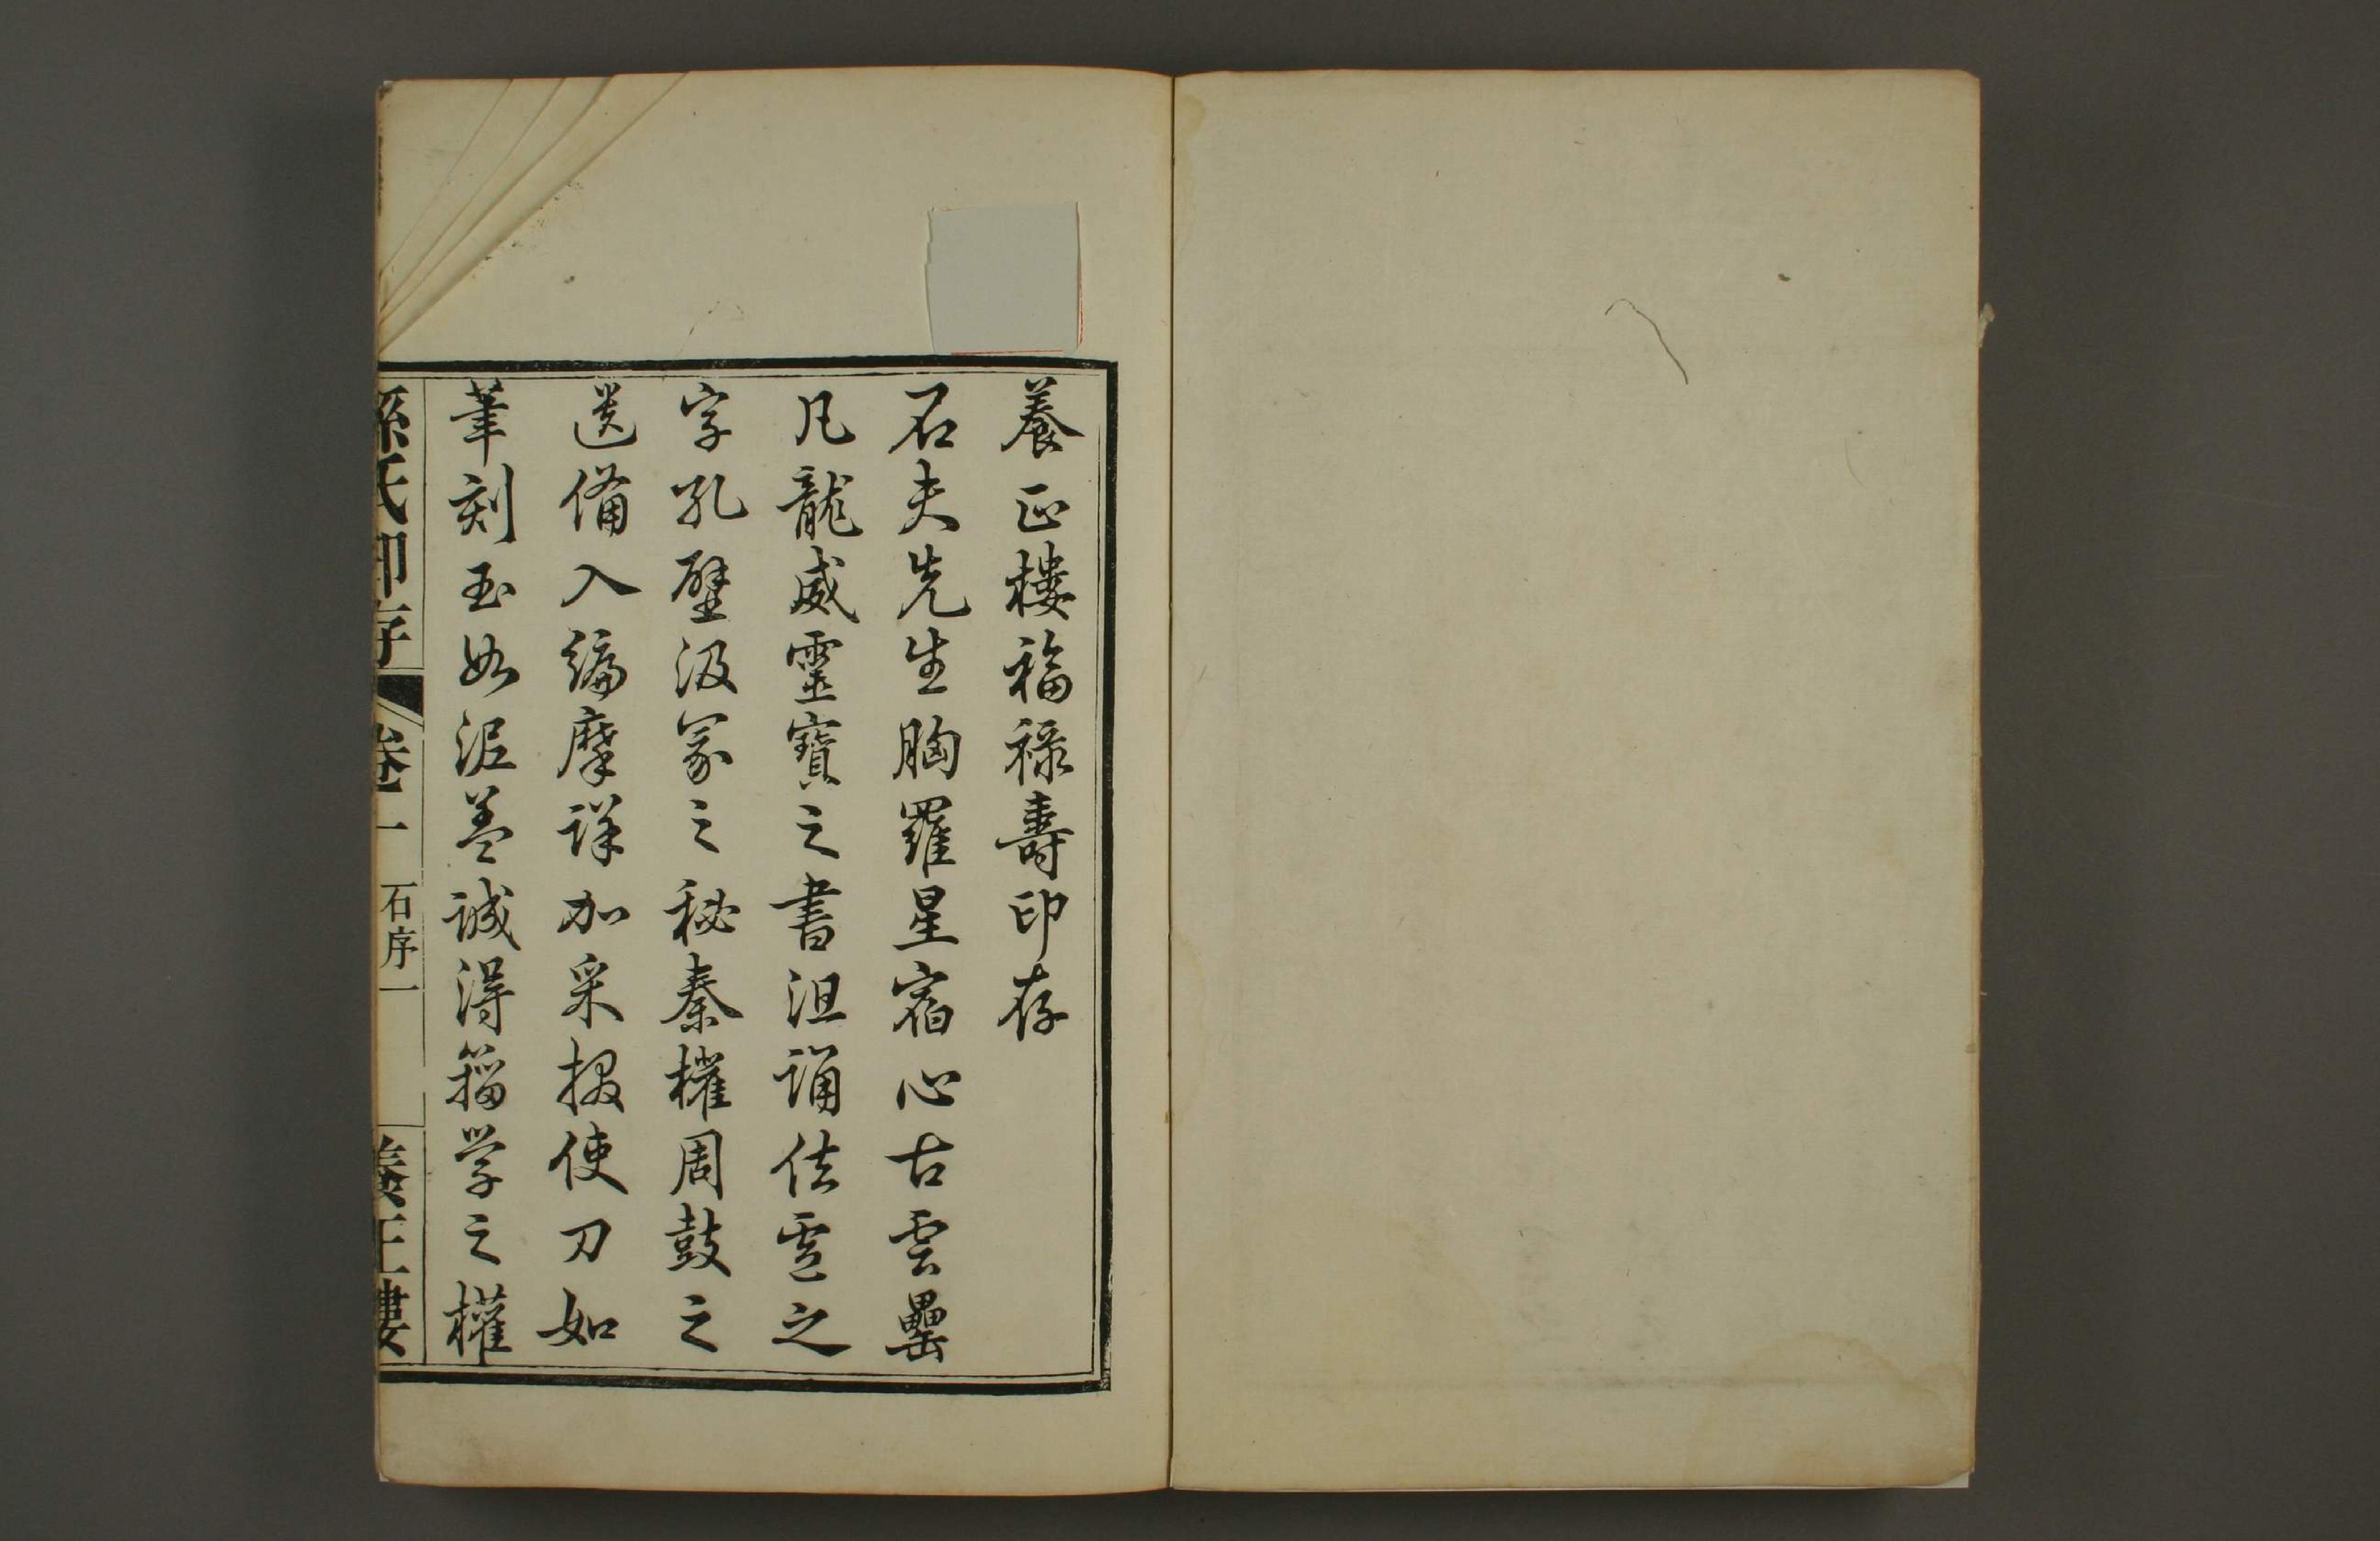 養正樓福祿壽印存
石夫先生胸羅星宿心古雲罍
凡龍威靈寶之書沮誦佉盧之
字孔壁汲冢之秘秦權周鼓之
遺備入編摩詳加采掇使刀如
筆刻玉如泥蓋誠得籀學之權
孫氏印存 卷一 石序一 養正樓